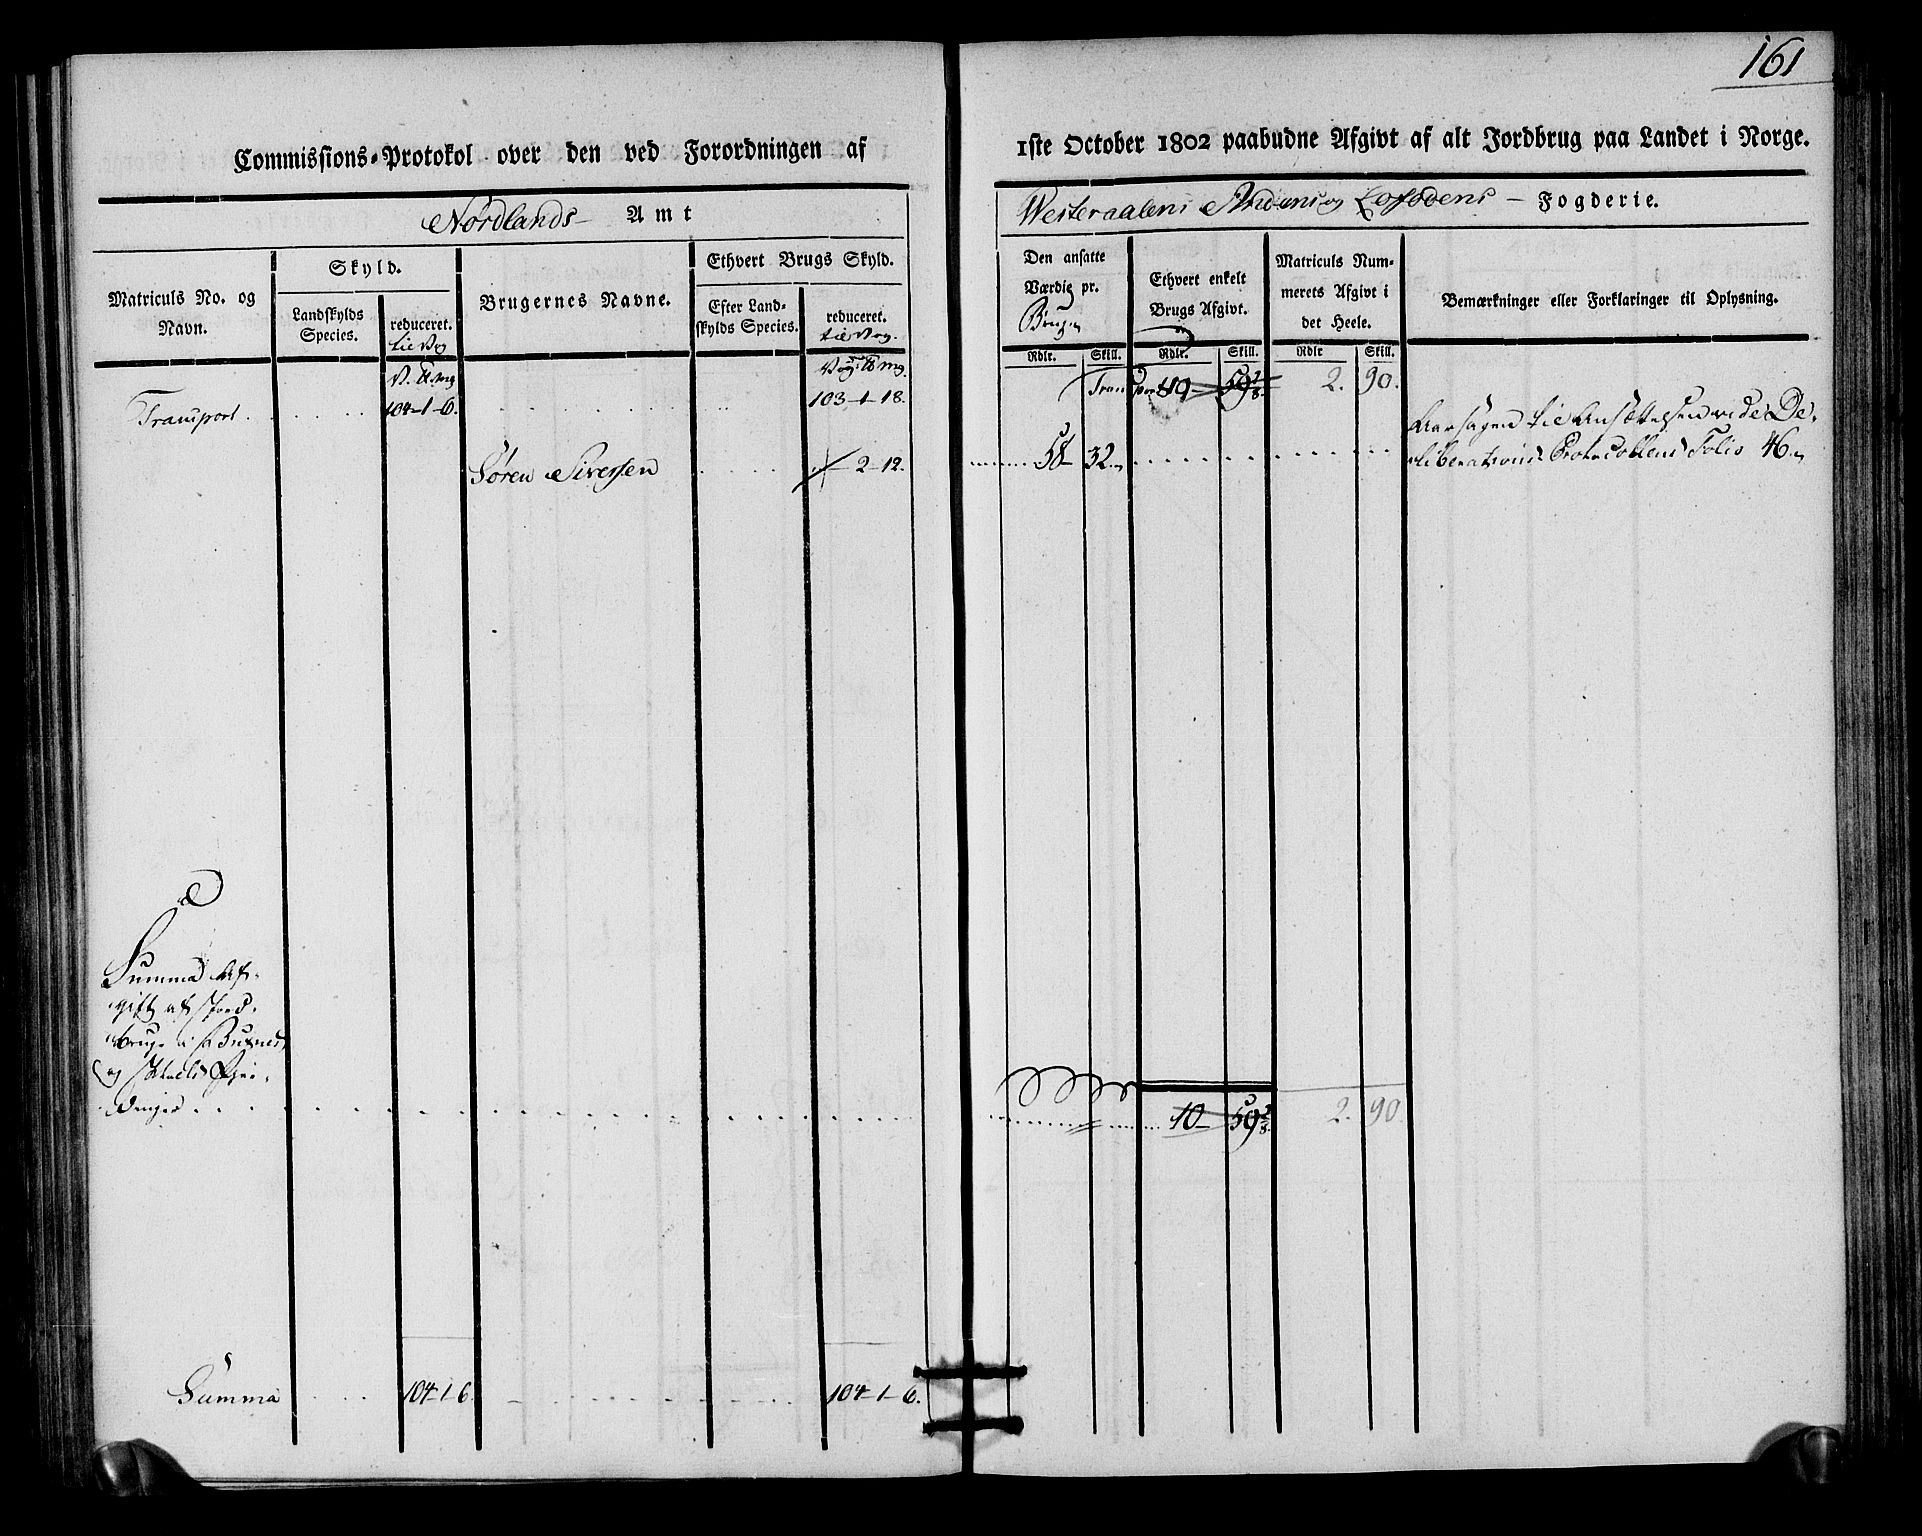 161
Commissions-Protokol over den ved Forordningen af
1ste October 1802 paabudne Afgivt af alt Jordbrug paa Landet i Norge.
Nordlands Amt
Westeraalens Andenes og Lofodens Fogderie.
Matriculs No. og
Navn.
Skyld.
Landskylds
Species.
reduceret.
til Vog
Brugernes Navne.
Ethvert Brugs Skyld.
Efter Land-
skylds Species.
reduceret.
til Vog.
Den ansatte
Værdie pr.
Brug
Rdlr. Skill.
Ethvert enkelt
Brugs Afgivt.
Rdlr. Skill.
Matriculs Num-
merets Afgivt i
det Heele.
Rdlr Skill.
Bemærkninger eller Forklaringer til Oplysning.
V. ℔ mg
Vog ℔ mg.
Transport . . . . . 104-1-6. . . . . . 103-1-18.
Transport 40- 59 2/8. 2. 90.
Søren Sivessen . . . . 2-12.
58 32 . . . . . .
Aarsagen til Ansættelsen vide De-
liberations Protocollens Folio 46
Summa Af-
gift af Jord-
bruge i Buxnes
og Hols Thin-
denger . . . . . . . . 40- 59 2/8. 2. 90.
Summa . . . . 104-1-6. . . . . . 104-1-6.